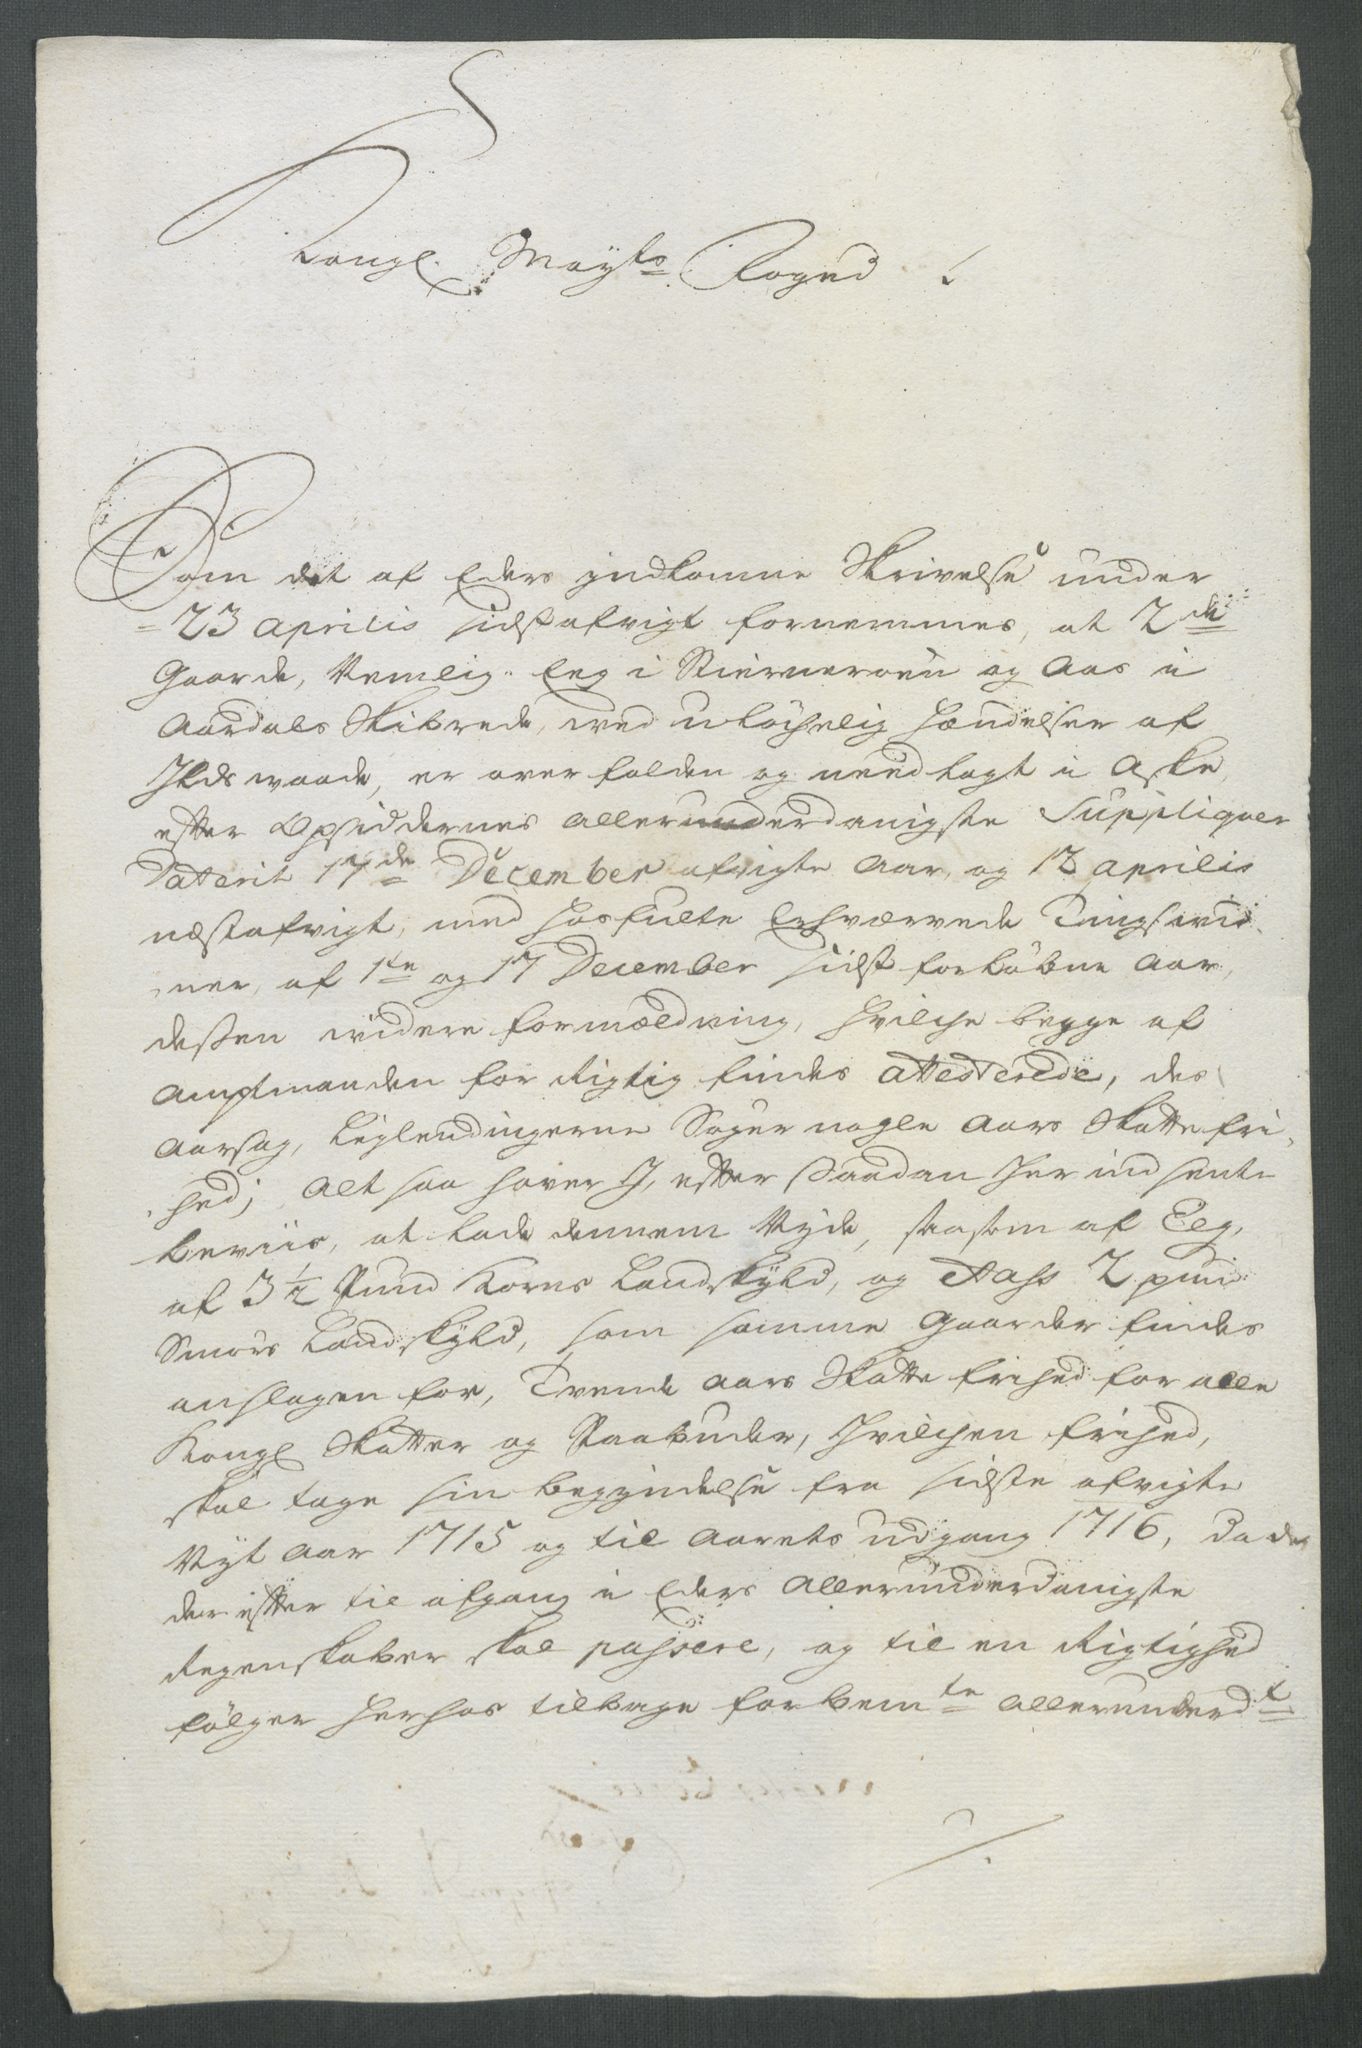 Kongl. Mayts Foged
Som det af Eders indkomne Skrivelse under
23 Aprilis sidstafvigt fornemmes, at 2de
Gaarde, Nemlig. Eeg i Stierneroen og Aas i
Aardals Skibrede, ved ulöchelig hændelser af
Ilds waade, er over falden og need lagt i Aske,
efter Opsiddernes allerunderdanigste Suppliquer
Datterit 17de December afvigte Aar, og 18 Aprilis
nestafvigt, med hosfulte Erhværvede Tingswid-
ner, af 1te og 17 December sidst forlöbne Aar,
dessen widere formældning, hvilche begge af
Amptmanden for Rigtig findes Attesterede, des
Aarsag, Leglendingerne Söger nogle Aars Skattefri-
hed; Alt saa haver I, efter saadan her ind sente
beviis, at lade dennem Nyde, saasom af Eeg,
af 3½ Pund Korns Landskyld, og Aass 2 pund
Smörs Landskyld, som samme Gaarder findes
anslagen for, Tvende Aars Skatte frihed for alle
Kongl Skatter og Paabuder, hvilchen frihed,
skal tage sin begyndelse fra sidste afvigte
Nyt Aar 1715 og til Aarets udgang 1716, da de
der efter til afgang i Eders Allerunderdanigste
Regenskaber skal passere, og til en Rigtighed
fölger herhos tilbage forbemte allerunderdt